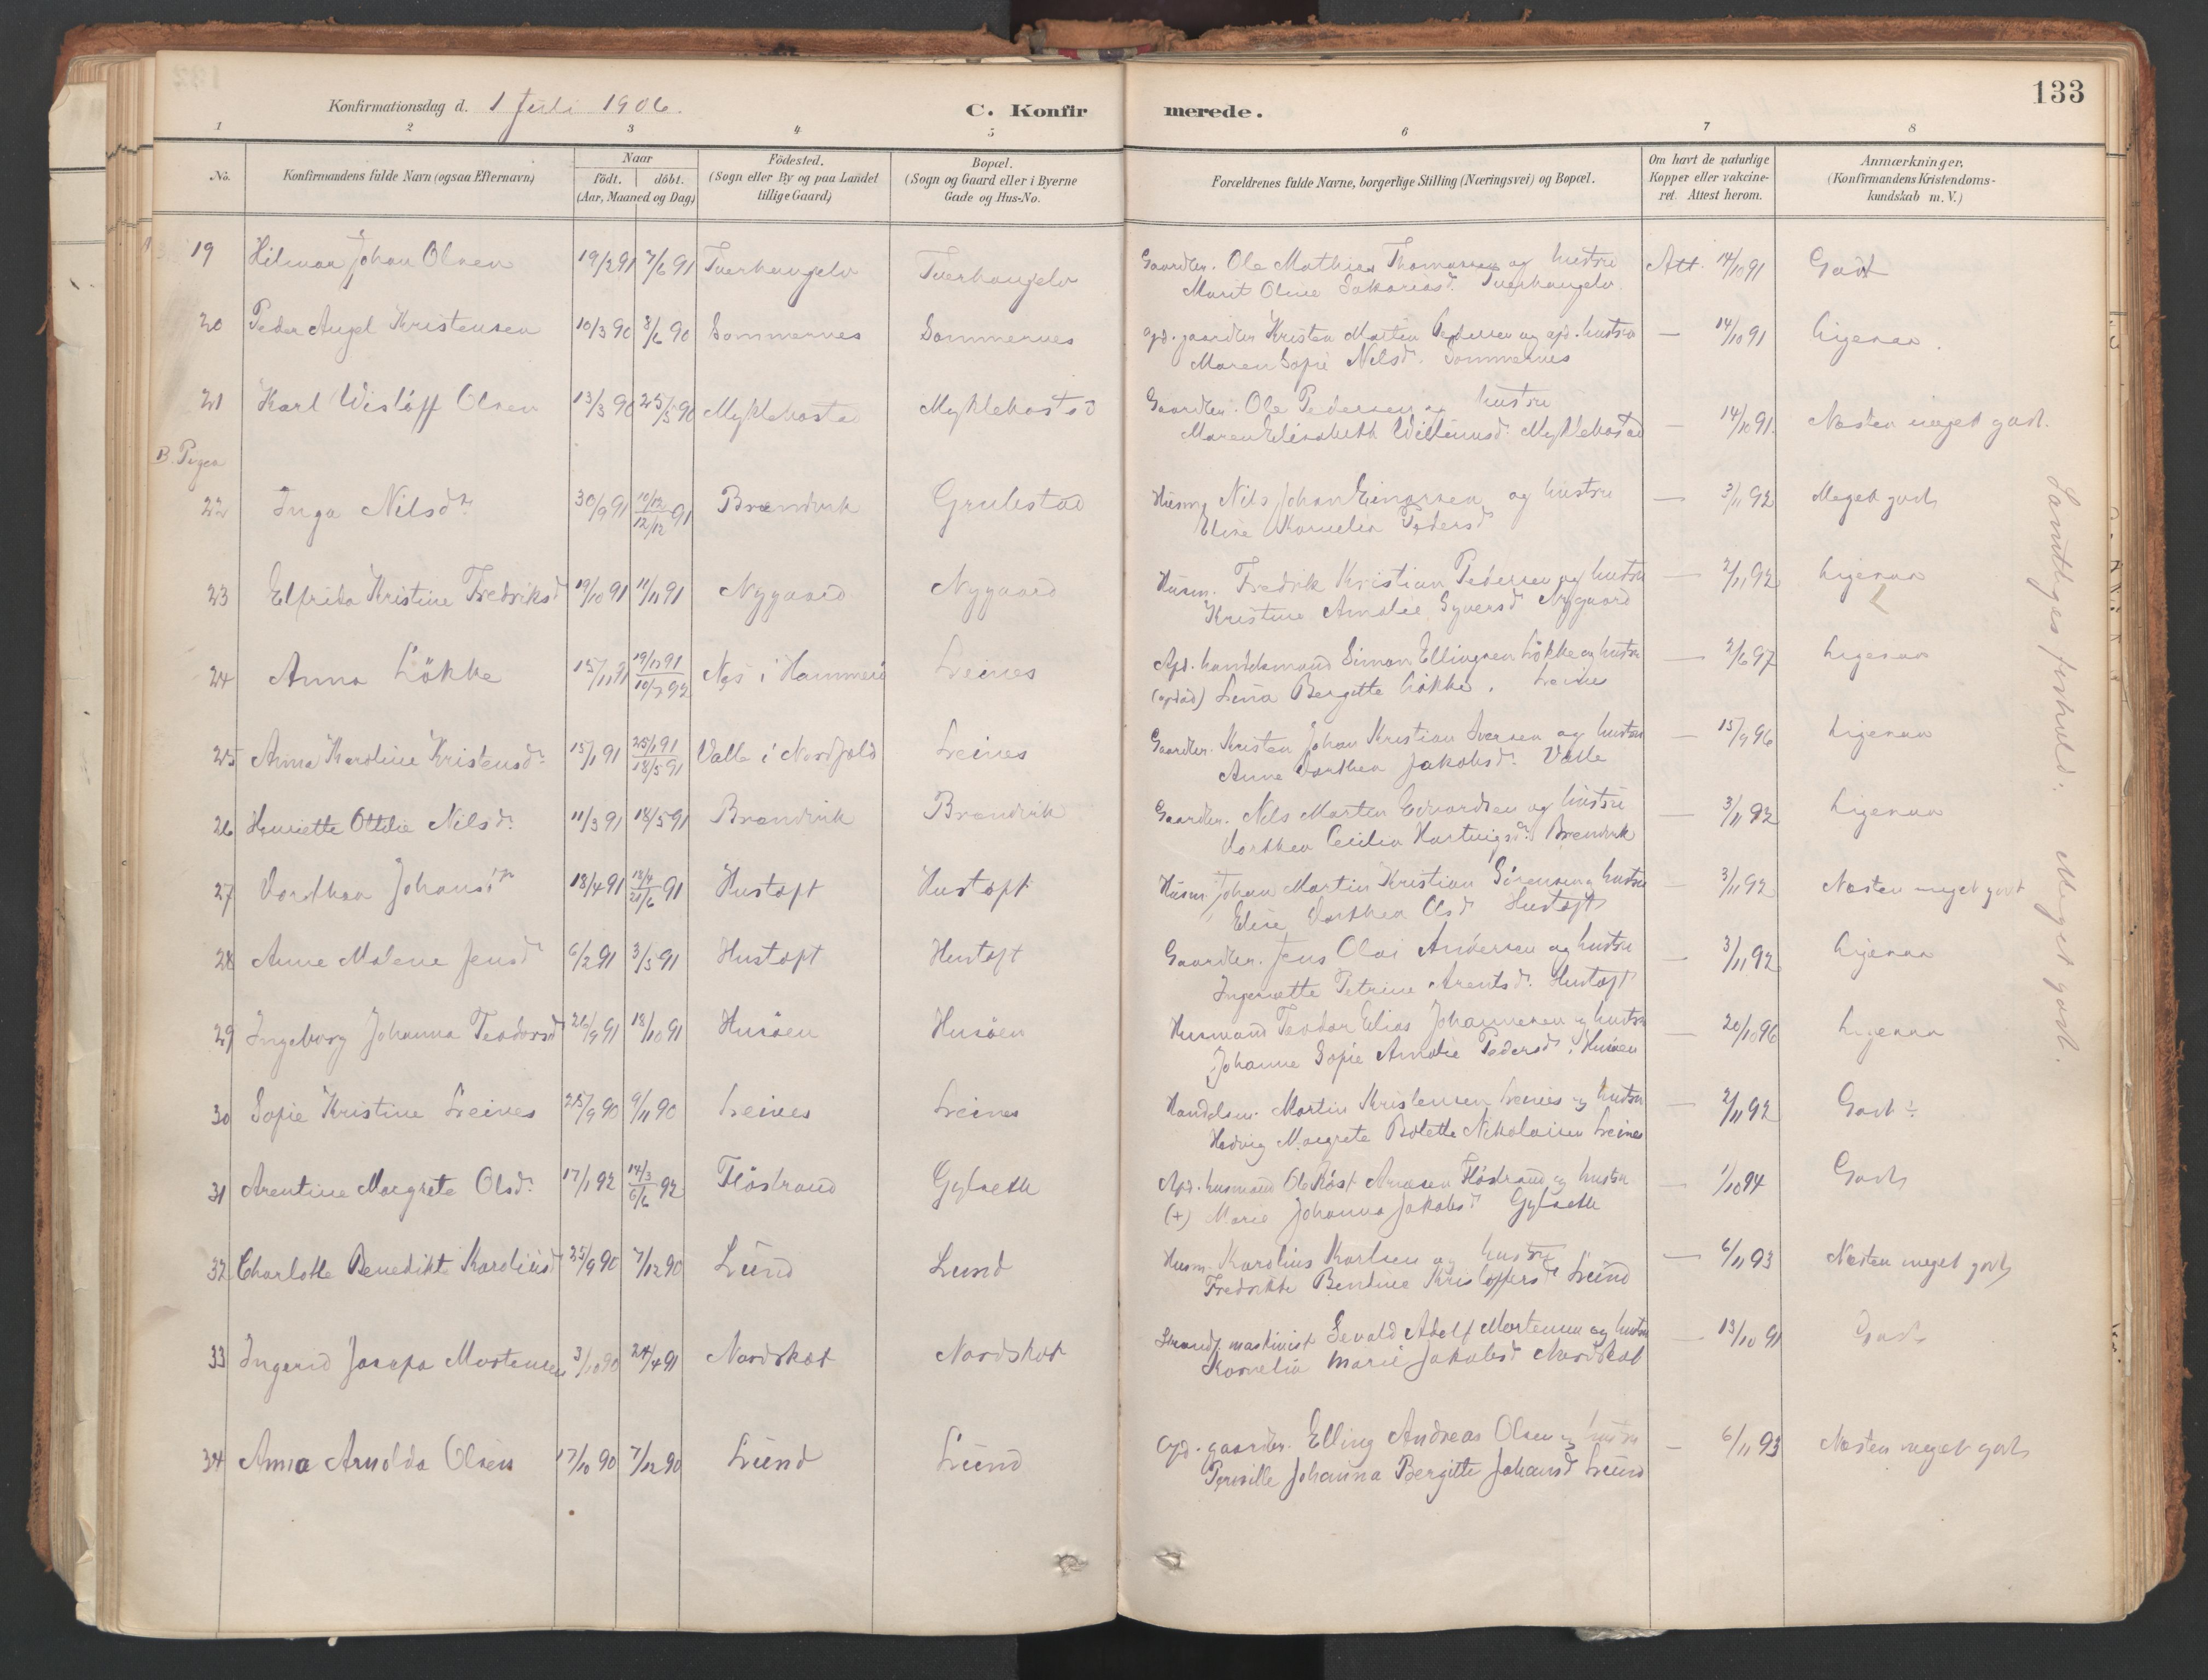 133
Konfirmationsdag d. 1 Juli 1906.
C. Konfirmerede.
1 2 3 4 5 6 7 8
No.
Konfirmandens fulde Navn (ogsaa Efternavn)
Naar
födt. döbt.
(Aar, Maaned og Dag)
Födested.
(Sogn eller By og paa Landet
tillige Gaard)
Bopæl.
(Sogn og Gaard eller i Byerne
Gade og Hus-No.
Forældrenes fulde Navne, borgerlige Stilling (Næringsvei) og Bopæl.
Om havt de naturlige
Kopper eller vakcine-
ret. Attest herom.
Anmærkninger.
(Konfirmandens Kristendoms-
kundskab m. V.)
19 Hilmar Johan Olsen 19/2 91 7/6 91 Tverhaugelv Tverhaugelv Gaardbr. Ole Mathias Thomassen og hustru Att. 14/10 91 Godt
Marit Oline Sakariasd. Tverhaugelv
20 Peder Angel Kristensen 10/3 90 8/6 90 Sommernes Sommernes Gjd. gaardbr Kristen Martin Pedersen og gjd. hustru — 14/10 91 Ligesaa.
Maren Sofie Nilsd. Sommernes
21 Karl Wislöff Olsen 13/3 90 25/5 90 Myklebostad Myklebostad Gaardbr. Ole Pedersen og hustru
Maren Elisabeth Villumsd. Myklebostad — 14/10 91. Næsten meget godt.
B. Piger
22 Inga Nilsdr. 30/9 91 10/12 12/12 91 Brændvik Grulestad Husm. Nils Johan Einarsen og hustru — 3/11 92 Meget godt
Elise Kornelia Pedersd.
23 Elfrida Kristine Fredriksd. 19/10 91 11/11 91 Nygaard Nygaard Husm. Fredrik Kristian Pedersen og hustru — 2/11 92 Ligesaa
Kristine Amalie Syversd. Nygaard
24 Anna Lökke 15/11 91 19/12 91 10/7 92 Nes i Hammerö Leines Gjd. handelsmand Simon Ellingsen Lökke og hustru — 2/6 97 Ligesaa
Lina Bergitte Lökke. Leines
25 Anna Karoline Kristensdr. 15/1 91 25/1 91 18/5 91 Valle i Nordfold Leines Gaardbr. Kristen Johan Kristian Iversen og hustru — 15/9 96 Ligesaa
Anne Dorthea Jakobsd. Valle
26 Henriette Ottilie Nilsdr. 11/3 91 18/5 91 Brændvik Brændvik Gaardbr. Nils Morten Edvardsen og hustru — 3/11 92 Ligesaa
Dorthea Cecilia Hartvigsd. Brændvik
27 Dorthea Johansdr. 18/4 91 18/4 21/6 91 Hustoft Hustoft Husm. Johan Martin Kristian Sörensen og hustru — 3/11 92 Næsten meget godt
Elise Dorthea Olsd. Hustoft
28 Anne Malene Jensd. 6/2 91 3/5 91 Hustoft Hustoft Gaardbr. Jens Olai Andersen og hustru — 3/11 92 Ligesaa
Ingeranette Petrine Arentsd. Hustoft
29 Ingeborg Johanna Teodorsd 26/9 91 18/10 91 Husöen Husöen Husmand Teodor Elias Johannesen og hustru — 20/10 96 Ligesaa
Johanne Sofie Amalie Pedersd. Husöen
30 Sofie Kristine Leines 25/9 90 9/11 90 Leines Leines Handelsm. Martin Kristensen Leines og hustru — 2/11 92 Godt ÷
Hedvig Margrete Bolette Nikolaisen Leines
31 Arentine Margrete Olsd. 17/1 92 14/3 6/6 92 Flöstrand Gylseth Gjd. husmand Ole Köst Arntsen Flöstrand og hustru — 1/10 94 Godt
(+) Marie Johanna Jakobsd. Gylseth
32 Charlotte Benedikte Karoliusd 25/9 90 7/12 90 Lund Lund Husm. Karolius Karlsen og hustru — 6/11 93 Næsten meget godt
Fredrikke Bentine Kristoffersd. Lund
33 Ingerid Josefa Mortensen 3/10 90 24/4 91 Nordskot Nordskot maskinist Sevald Adolf Mortensen og hustru — 13/10 91 Godt
Kornelia Marie Jakobsd. Nordskot
34 Anna Arnolda Olsen 17/10 90 7/12 90 Lund Lund Gjd. gaardbr. Elling Andreas Olsen og hustru — 6/11 93 Næsten meget godt
Pernille Johanna Bergitte Johansd. Lund
Samtliges forhold: Meget godt.